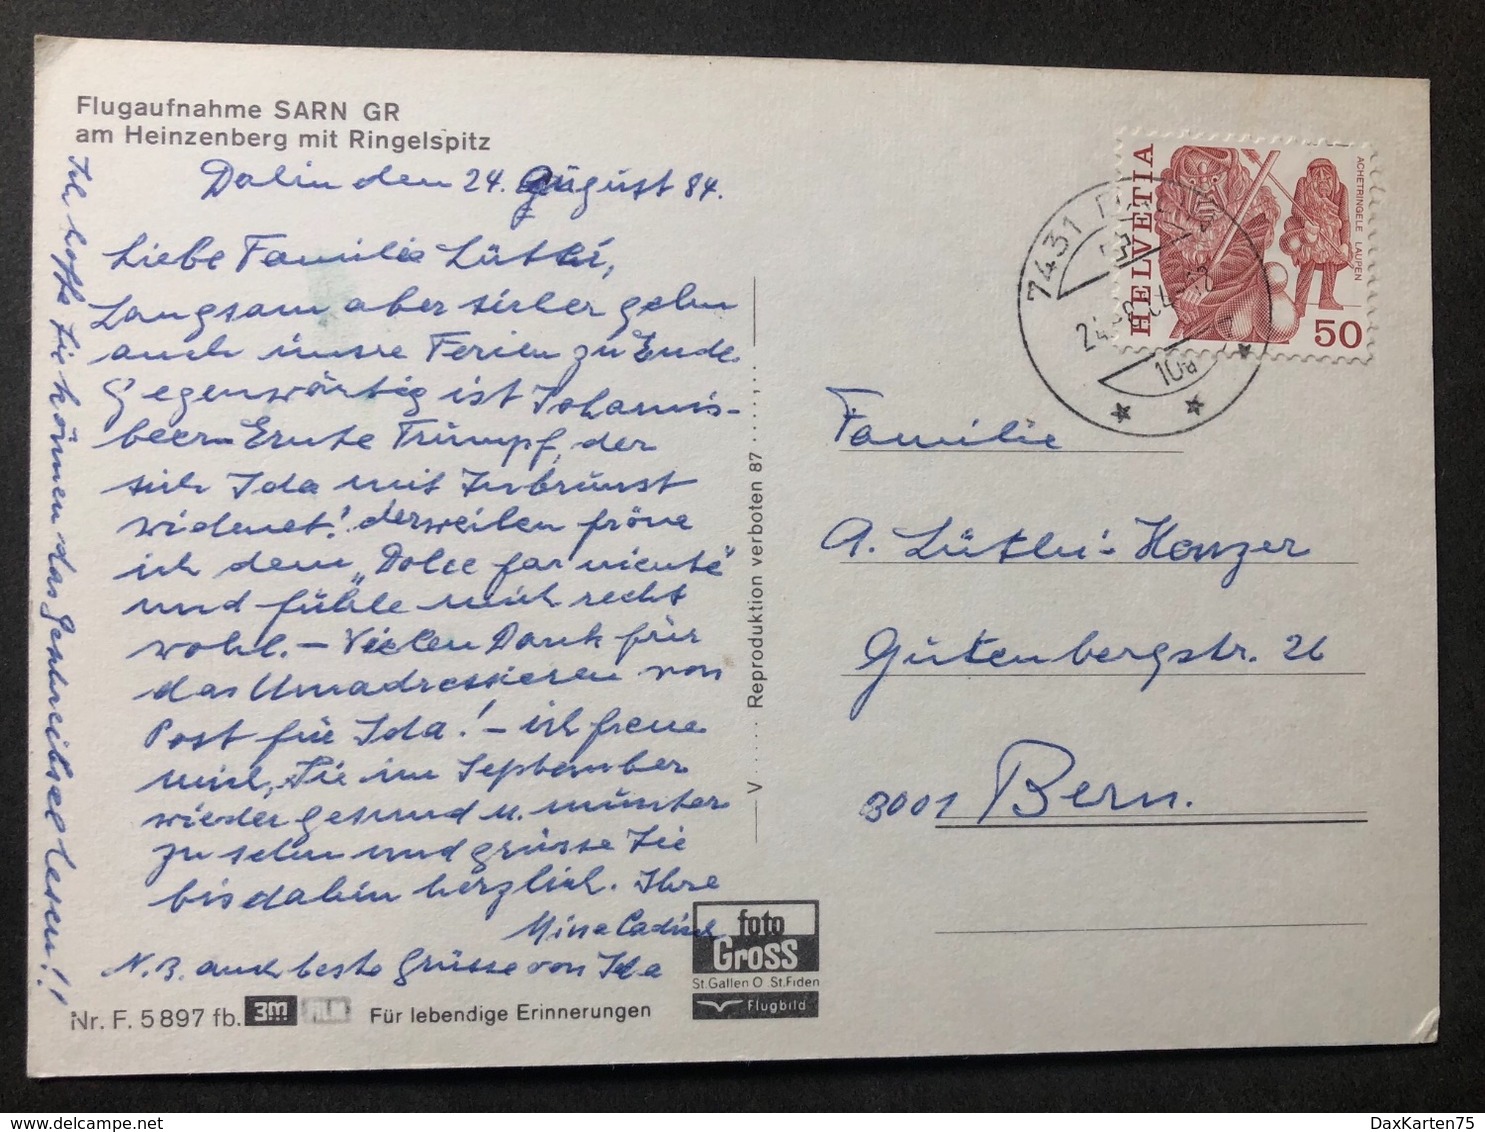 Flugaufnahme SARN GR
am Heinzenberg mit Ringelspitz
Dalin den 24. August 84.
Liebe Familie Lüthi,
Langsam aber sicher gehn
auch unsre Ferien zu Ende
Gegenwärtig ist Johannis-
beer-Ernte Trumpf, der
sich Ida mit Inbrunst
widmet! derweilen fröne
ich dem „Dolce far niente"
und fühle mich recht
wohl. - Vielen Dank für
das Umadressieren von
Post für Ida! - ich freue
mich, Sie im September
wieder gesund u. munter
zu sehn und grüsse Sie
bis dahin herzlich. Ihre
Mina Cadisch
N.B. auch beste Grüsse von Ida
Ich hoffe Sie können das Geschreibsel lesen!!
Nr. F. 5897 fb. 3M FILM Für lebendige Erinnerungen
foto
Gross
St.Gallen O St.Fiden
Flugbild
V..... Reproduktion verboten 87.....,..
HELVETIA
ACHETRINGELE LAUPEN
50
7431
24.-8.84-18
10a
Familie
A. Lüthi-Henzer
Gutenbergstr. 26
3001 Bern.
DaxKarten75